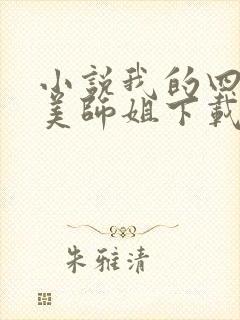 小説我的四
美師姐下載
朱雅清